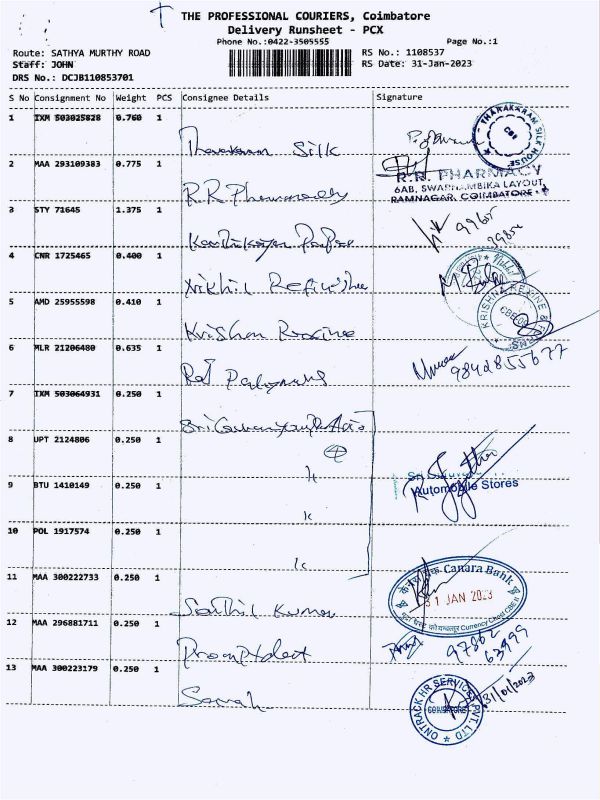 THE PROFESSIONAL COURIERS, Coimbatore
Delivery Runsheet - PCX
Phone No.:0422-3505555
Page No.:1
Route: SATHYA MURTHY ROAD
RS No.: 1108537
Staff: JOHN
RS Date: 31-Jan-2023
DRS No.: DCJB110853701
S No Consignment No Weight PCS Consignee Details Signature
1 IXM 503025828 0.760 1
Silk
THARAKARAM SILK HOUSE
CBE
2 MAA 293109383 0.775 1
R.R. Pharmacy
R.R. PHARMACY
6AB, SWARNAMBIKA LAYOUT,
RAMNAGAR, COIMBATORE -
3 STY 71645 1.375 1
4 CNR 1725465 0.400 1
Nikhil
5 AMD 25955598 0.410 1
Krishna
KRISHNA REXINE & FOAMS
6 MLR 21206480 0.635 1
Raj Polymers
9842855677
7 IXM 503064931 0.250 1
8 UPT 2124806 0.250 1
4
9 BTU 1410149 0.250 1
Automobile Stores
10 POL 1917574 0.250 1
11 MAA 300222733 0.250 1
Kumar
Canara Bank
31 JAN 2023
Currency Chest CBE II
12 MAA 296881711 0.250 1
97862
63999
13 MAA 300223179 0.250 1
31/01/2023
ONTRACK HR SERVICES PVT. LTD
COIMBATORE